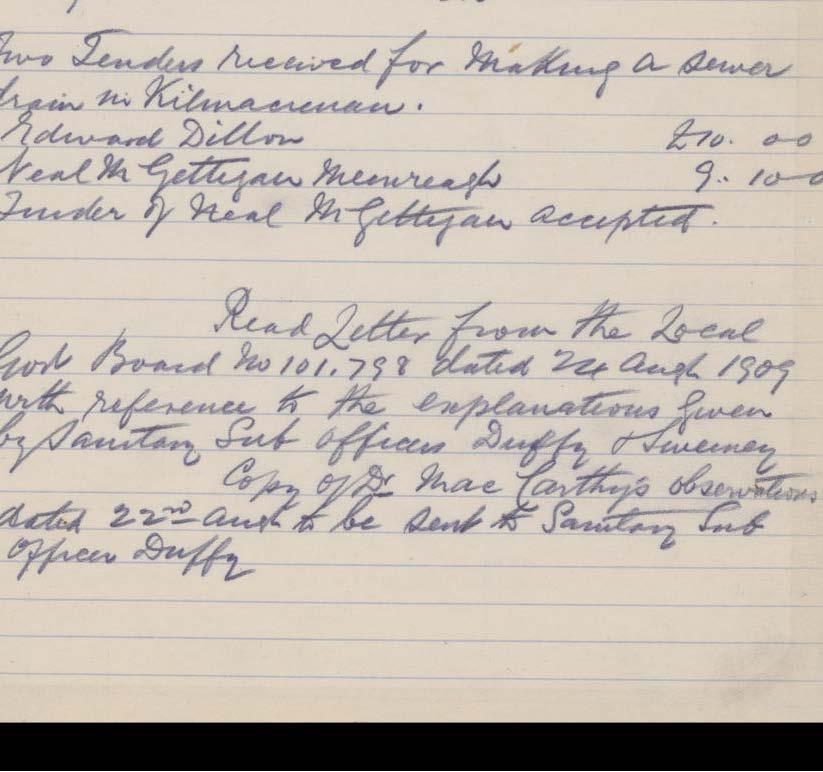 Two Tenders received for Making a sewer
drain in Kilmacrenan.
Edward Dillon £10. 00
Neal McGettigan Meenreagh 9. 10 0
Tender of Neal McGettigan accepted.
Read Letter from the Local
Govt Board No 101.798 dated 24 Augt 1909
with reference to the explanations given
by Sanitary Sub officers Duffy & Sweeney
Copy of Dr Mac Carthy's observations
dated 22nd Augt to be sent to Sanitary Sub
Officer Duffy